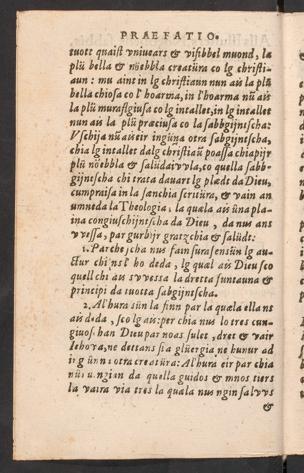 PRAEFATIO.
tuott quaist vniuears & visibbel muond, la
plü bella & nöebbla creatüra co lg christi-
aun: mu aint in lg christiaun nun ais la plü
bella chiosa co l'hoarma, in l'hoarma nü ais
la plü murafgiusa co lg intallet, in lg intallet
nun ais la plü præciusa co la sabbgijntscha:
Vschija nü ais eir ingüna otra sabgijntscha,
chia lg intallet dalg christiaü poassa chiapijr
plü nöebbla & salüdaivvla, co quella sabb-
gijntscha chi trata dauart lg plæds da Dieu,
cumpraisa in la sanchia scritüra, & vain an
umneda la Theologia, la quæla ais üna plai-
na congiuschijntscha da Dieu, da nus ans
vvessa, par gurbijr gratzchia & salüdt:
1. Parche scha nus sainsurasensün lg au-
ctur chi'ns l'ho deda, lg qual ais Dieu sco
quell chi ais svvessa la dretta funtauna &
principi da tuotta sabgijntscha.
2. Alhura sün la finn par la quæla ella ns
ais deda, sco lg ais: per chia nus lo tres cun-
giuos han Dieu par noas sulet, dret & vair
Iehova, ne dettans si a glüergia ne hunur ad
ingünna otra creatüra: Alhura eir par chia
nüs ungian da quella guidos & mnos tiers
la vaira via tres la quala nus ngin salvvs
&